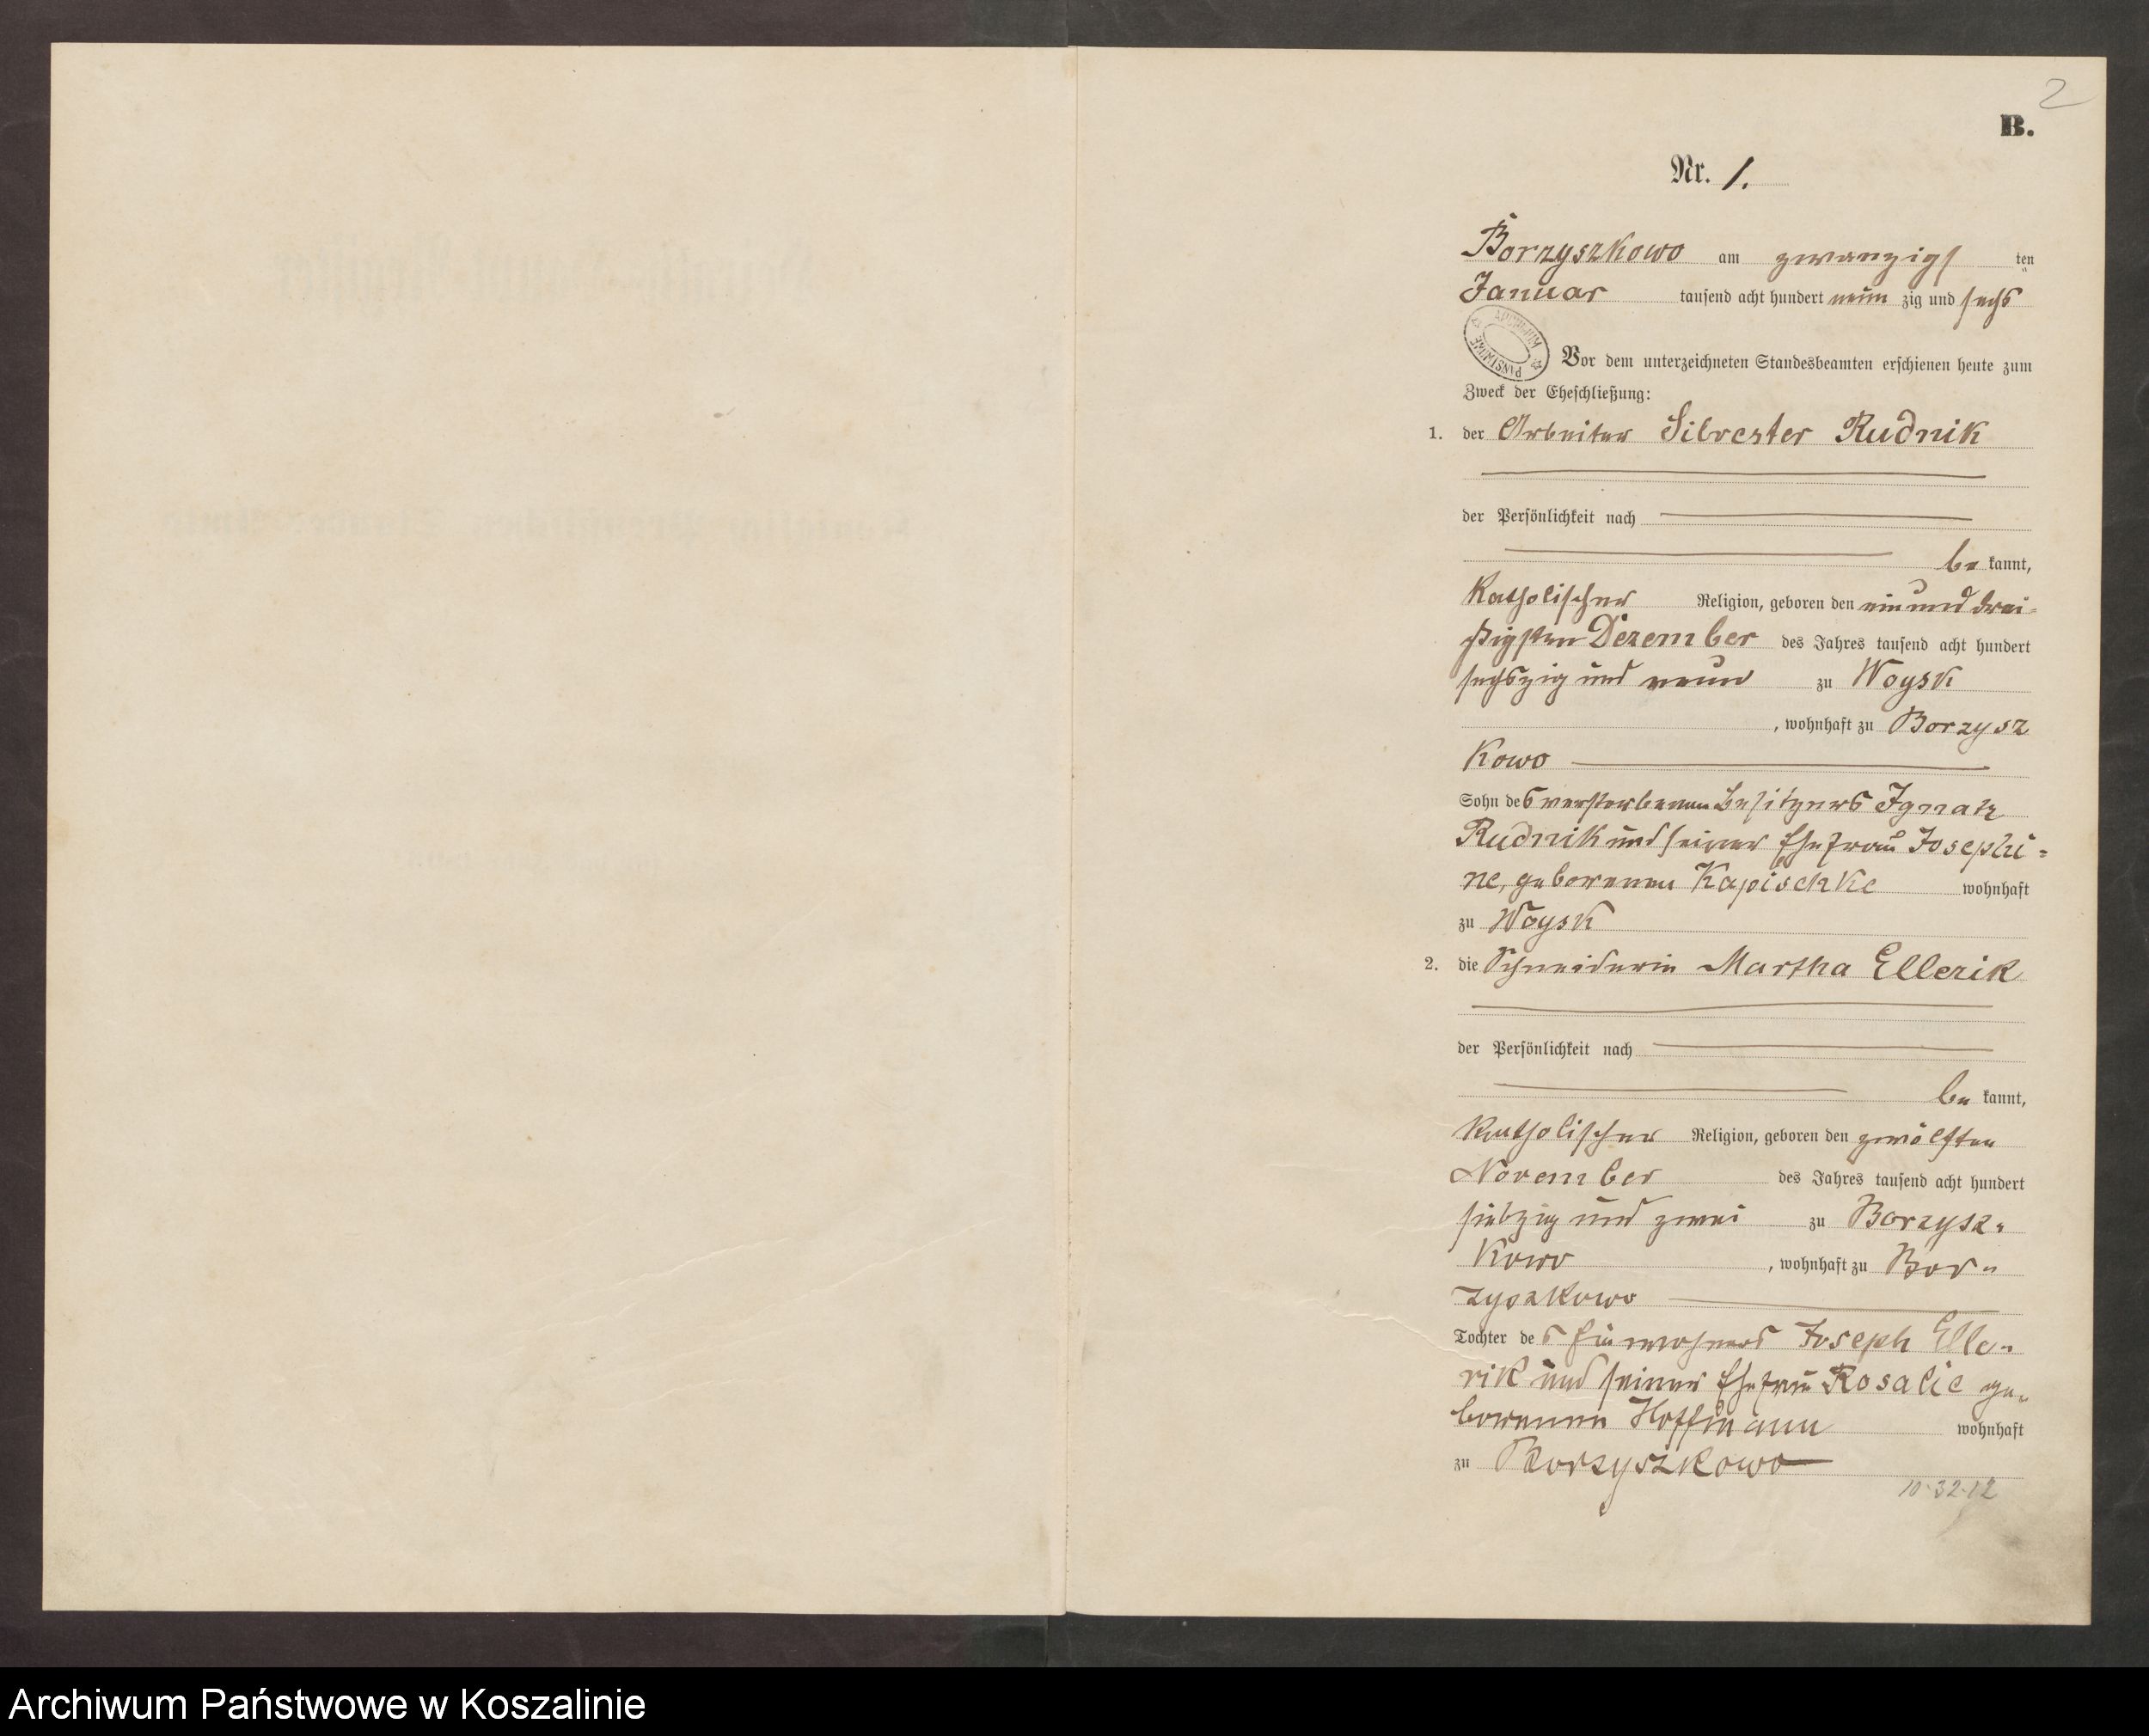 2
B.
Nr. 1.
Borzyszkowo am zwanzigs ten
Januar tausend acht hundert neun zig und sechs
ARCHIWUM PAŃSTWOWE
Vor dem unterzeichneten Standesbeamten erschienen heute zum
Zweck der Eheschließung:
1. der Arbeiter Silvester Rudnik
der Persönlichkeit nach
be kannt,
katholischer Religion, geboren den ein und drei=
ßigsten Dezember des Jahres tausend acht hundert
sechszig und neun zu Woysk
, wohnhaft zu Borzysz
kowo
Sohn des verstorbenen Besitzers Ignatz
Rudnik und seiner Ehefrau Josephi=
ne, geborenen Kapischke wohnhaft
zu Woysk
2. die Schneiderin Martha Ellerik
der Persönlichkeit nach
be kannt,
katholischer Religion, geboren den zwölften
November des Jahres tausend acht hundert
siebzig und zwei zu Borzysz=
kowo , wohnhaft zu Bor=
zyszkowo
Tochter des Einwohners Joseph Elle=
rik und seiner Ehefrau Rosalie ge=
borenen Hoffmann wohnhaft
zu Borzyszkowo
10·32·12
Archiwum Państwowe w Koszalinie